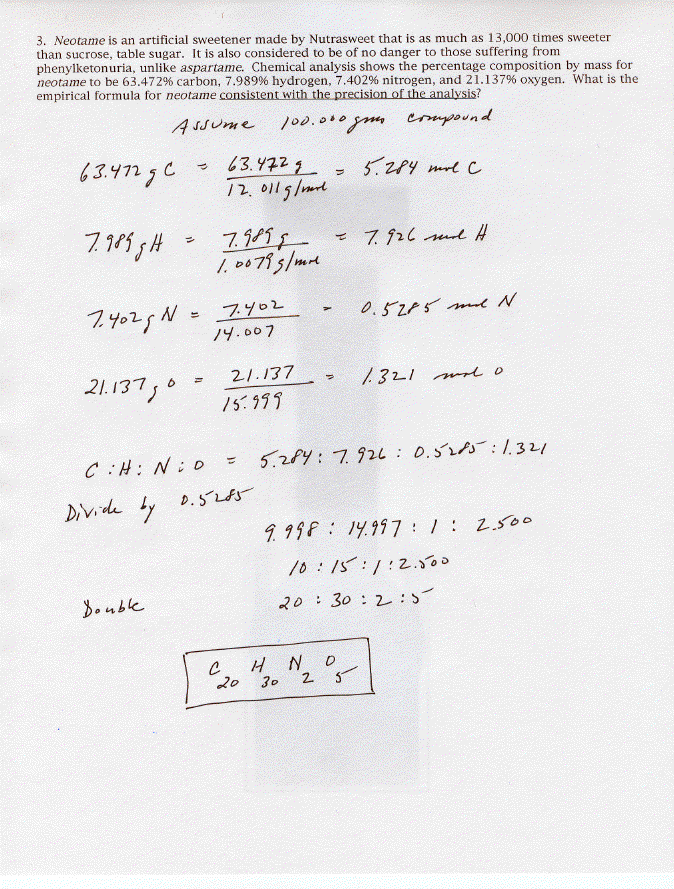 3. Neotame is an artificial sweetener made by Nutrasweet that is as much as 13,000 times sweeter
than sucrose, table sugar. It is also considered to be of no danger to those suffering from
phenylketonuria, unlike aspartame. Chemical analysis shows the percentage composition by mass for
neotame to be 63.472% carbon, 7.989% hydrogen, 7.402% nitrogen, and 21.137% oxygen. What is the
empirical formula for neotame consistent with the precision of the analysis?
Assume 100.000 gms compound
63.472 g C = 63.472 g / 12.011 g/mol = 5.284 mol C
7.989 g H = 7.989 g / 1.0079 g/mol = 7.926 mol H
7.402 g N = 7.402 / 14.007 = 0.5285 mol N
21.137 g O = 21.137 / 15.999 = 1.321 mol O
C : H : N : O = 5.284 : 7.926 : 0.5285 : 1.321
Divide by 0.5285
9.998 : 14.997 : 1 : 2.500
10 : 15 : 1 : 2.500
Double 20 : 30 : 2 : 5
C20 H30 N2 O5